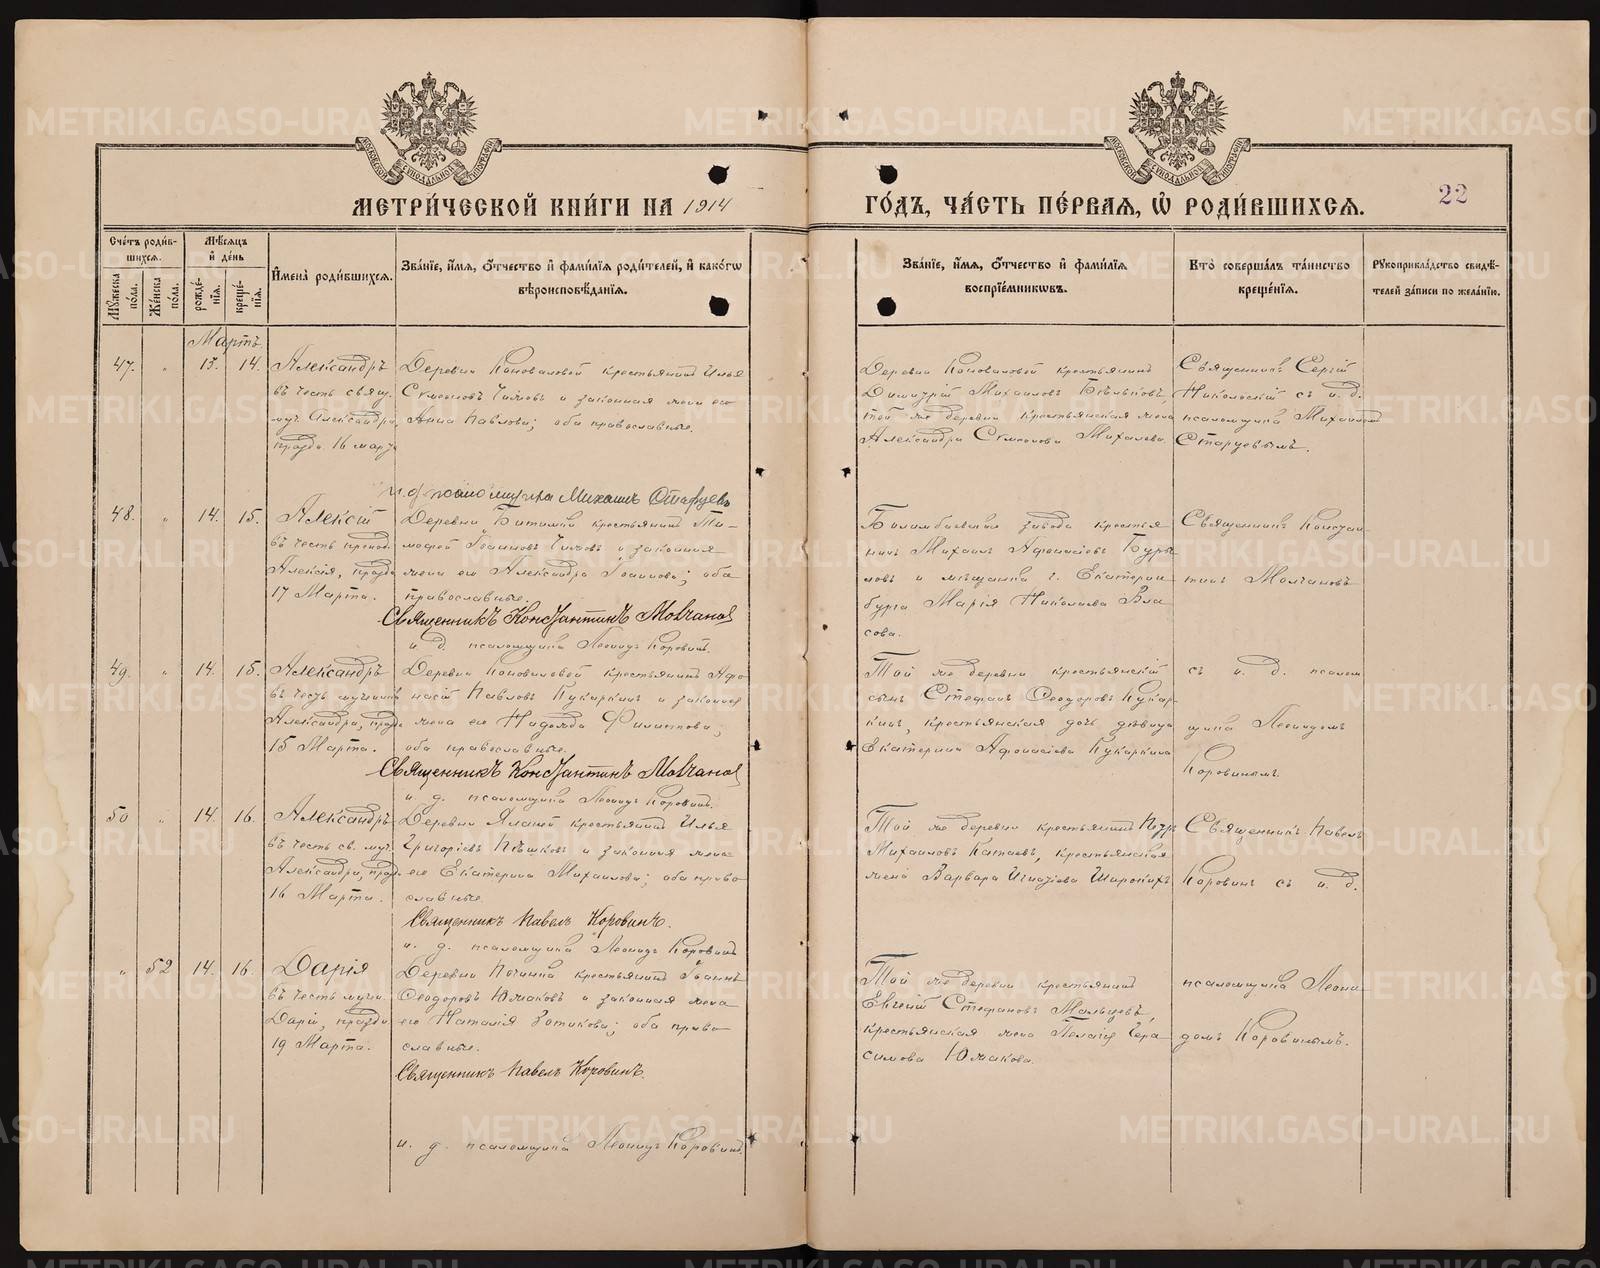 МЕТРИ́ЧЕСКОЙ КНИ́ГИ НА 1914
ГО́ДЪ, ЧА́СТЬ ПЕ́РВАЯ, Ѽ РОДИ́ВШИХСЯ.
22
МОСКОВСКОЙ СѴНОДАЛЬНОЙ ТИПОГРАФІИ
МОСКОВСКОЙ СѴНОДАЛЬНОЙ ТИПОГРАФІИ
Сче́тъ роди́в-
шихся.
Му́жеска по́ла.
Же́нска по́ла.
Мѣ́сяцъ
и҆ де́нь
рожде́-
нія.
креще́-
нія.
И҆мена̀ роди́вшихся.
Зва́ніе, и҆́мя, ѻ҆́тчество и҆ фами́лія роди́телей, и҆ како́гѡ
вѣроисповѣ́данія.
Зва́ніе, и҆́мя, ѻ҆́тчество и҆ фами́лія
воспріе́мниковъ.
Кто̀ соверша́лъ та́инство
креще́нія.
Рукоприкла́дство свидѣ́-
телей за́писи по жела́нію.
Мартъ.
47. " 13. 14.
Александръ
въ честь свящ.
муч. Александра,
празд. 16 март.
Деревни Коноваловой крестьянинъ Илья
Симеоновъ и законная жена его
Анна Павлова; оба православные.
и. д. псаломщика Михаилъ Старцевъ
Деревни Коноваловой крестьянинъ
Димитрій Михаиловъ
той же деревни крестьянская жена
Александра Симеонова Михалева.
Священникъ Сергій
Никольскій съ и. д.
псаломщика Михаиломъ
Старцевымъ.
48. " 14. 15.
Алексій
въ честь препод.
Алексія, празд.
17 Марта.
Деревни Битимки крестьянинъ Ти-
мофей Іоанновъ и законная
жена его Александра Іоаннова; оба
православные.
Священникъ Константинъ Молчановъ
и. д. псаломщика Леонидъ Коровинъ.
Билимбаевскаго завода крестья
нинъ Михаил Афанасіевъ Буры
ловъ и мѣщанка г. Екатерин
бурга Марія Николаева Вла
сова.
Священникъ Констан
тинъ Молчановъ
49. " 14. 15.
Александръ
въ честь мученика
Александра, празд.
15 Марта.
Деревни Коноваловой крестьянинъ Афа
насій Павловъ Кукаркинъ и законная
жена его Надежда Филиппова;
оба православные.
Священникъ Константинъ Молчановъ
и. д. псаломщика Леонидъ Коровинъ.
Той же деревни крестьянскій
сынъ Стефанъ Ѳеодоровъ Кукар
кинъ, крестьянская дочь дѣвица
Екатерина Афанасіева Кукаркина
съ и. д. псалом
щика Леонидомъ
Коровинымъ.
50 " 14. 16.
Александръ
въ честь св. муч.
Александра, празд.
16 Марта.
Деревни крестьянинъ Илья
Григоріевъ Пѣшковъ и законная жена
его Екатерина Михаилова; оба право
славные.
Священникъ Павелъ Коровинъ.
и. д. псаломщика Леонидъ Коровинъ
Той же деревни крестьянинъ Петръ
Михаиловъ Катаевъ, крестьянская
жена Варвара Игнатіева Широкихъ
Священникъ Павелъ
Коровинъ съ и. д.
" 52 14. 16.
Дарія
въ честь мучен.
Даріи, праздн.
19 Марта.
Деревни Починка крестьянинъ Іоаннъ
Ѳеодоровъ Южаковъ и законная жена
его Наталія Зотикова; оба право
славные.
Священникъ Павелъ Коровинъ.
и. д. псаломщика Леонидъ Коровинъ.
Той же деревни крестьянинъ
Евгеній Стефановъ Мальцевъ,
крестьянская жена Пелагія Гера
симова Южакова.
псаломщика Леони
домъ Коровинымъ.